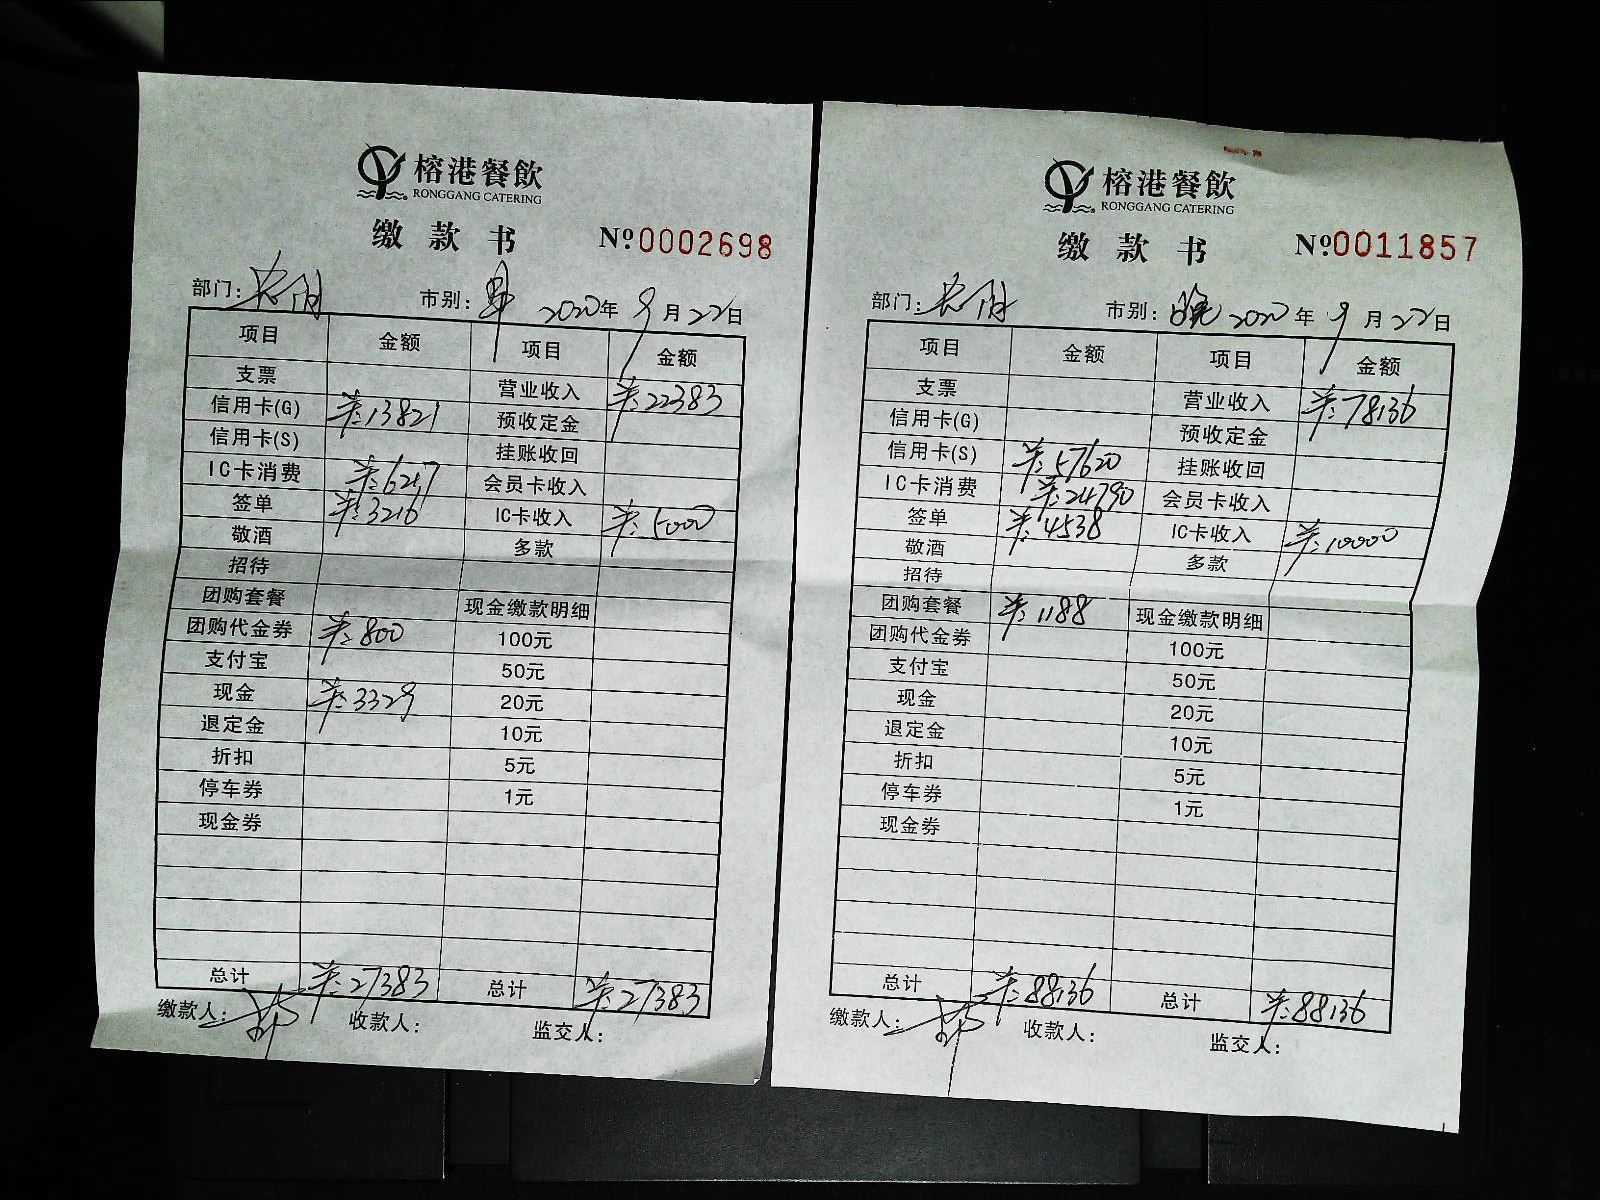 榕港餐飲
RONGGANG CATERING
缴款书 №0002698
部门: 市别: 2020年9月22日
项目 金额 项目 金额
支票 营业收入 22383
信用卡(G) 13821 预收定金
信用卡(S) 挂账收回
IC卡消费 6217 会员卡收入
签单 3216 IC卡收入 5000
敬酒 多款
招待
团购套餐 现金缴款明细
团购代金券 800 100元
支付宝 50元
现金 3329 20元
退定金 10元
折扣 5元
停车券 1元
现金券
总计 27383 总计 27383
缴款人: 收款人: 监交人:
榕港餐飲
RONGGANG CATERING
缴款书 №0011857
部门: 市别: 晚 2020年9月22日
项目 金额 项目 金额
支票 营业收入 78136
信用卡(G) 预收定金
信用卡(S) 57620 挂账收回
IC卡消费 24790 会员卡收入
签单 4538 IC卡收入 10000
敬酒 多款
招待
团购套餐 1188 现金缴款明细
团购代金券 100元
支付宝 50元
现金 20元
退定金 10元
折扣 5元
停车券 1元
现金券
总计 88136 总计 88136
缴款人: 收款人: 监交人: